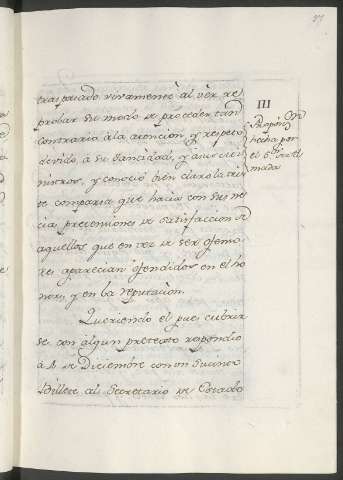 37
traspasado vivamente al vèr re
probar su modo de proceder tan
contrario à la atencion, y respeto
devido, à su Santidad, y à sus Mi
nistros, y conociò bien claro la tris
te comparia que hacia con sus ne
cia pretenciones de satisfaccion de
aquellos que en vez de ser ofenso
res aparecian ofendidos en el ho
nor, y en la reputacion.
Queriendo el pues cubrir
se con algun pretexto respondiò
à 4 de Diciembre con un Sucinto
Billete al Secretario de Estado
III
Proposⁿ
hecha por
el
mada